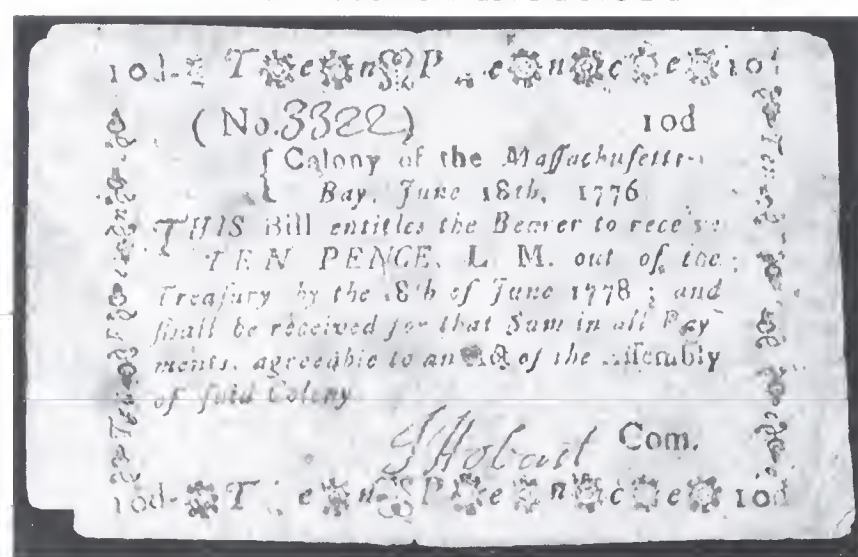 10d- Ten Pence 10d
(No. 3322) 10d
Colony of the Maſſachuſetts-
Bay, June 18th, 1776
THIS Bill entitles the Bearer to receive
TEN PENCE, L. M. out of the
Treaſury by the 18th of June 1778 ; and
ſhall be received for that Sum in all Pay
ments, agreeable to an Act of the Aſſembly
of ſaid Colony
J Hobart Com.
10d- Ten Pence 10d